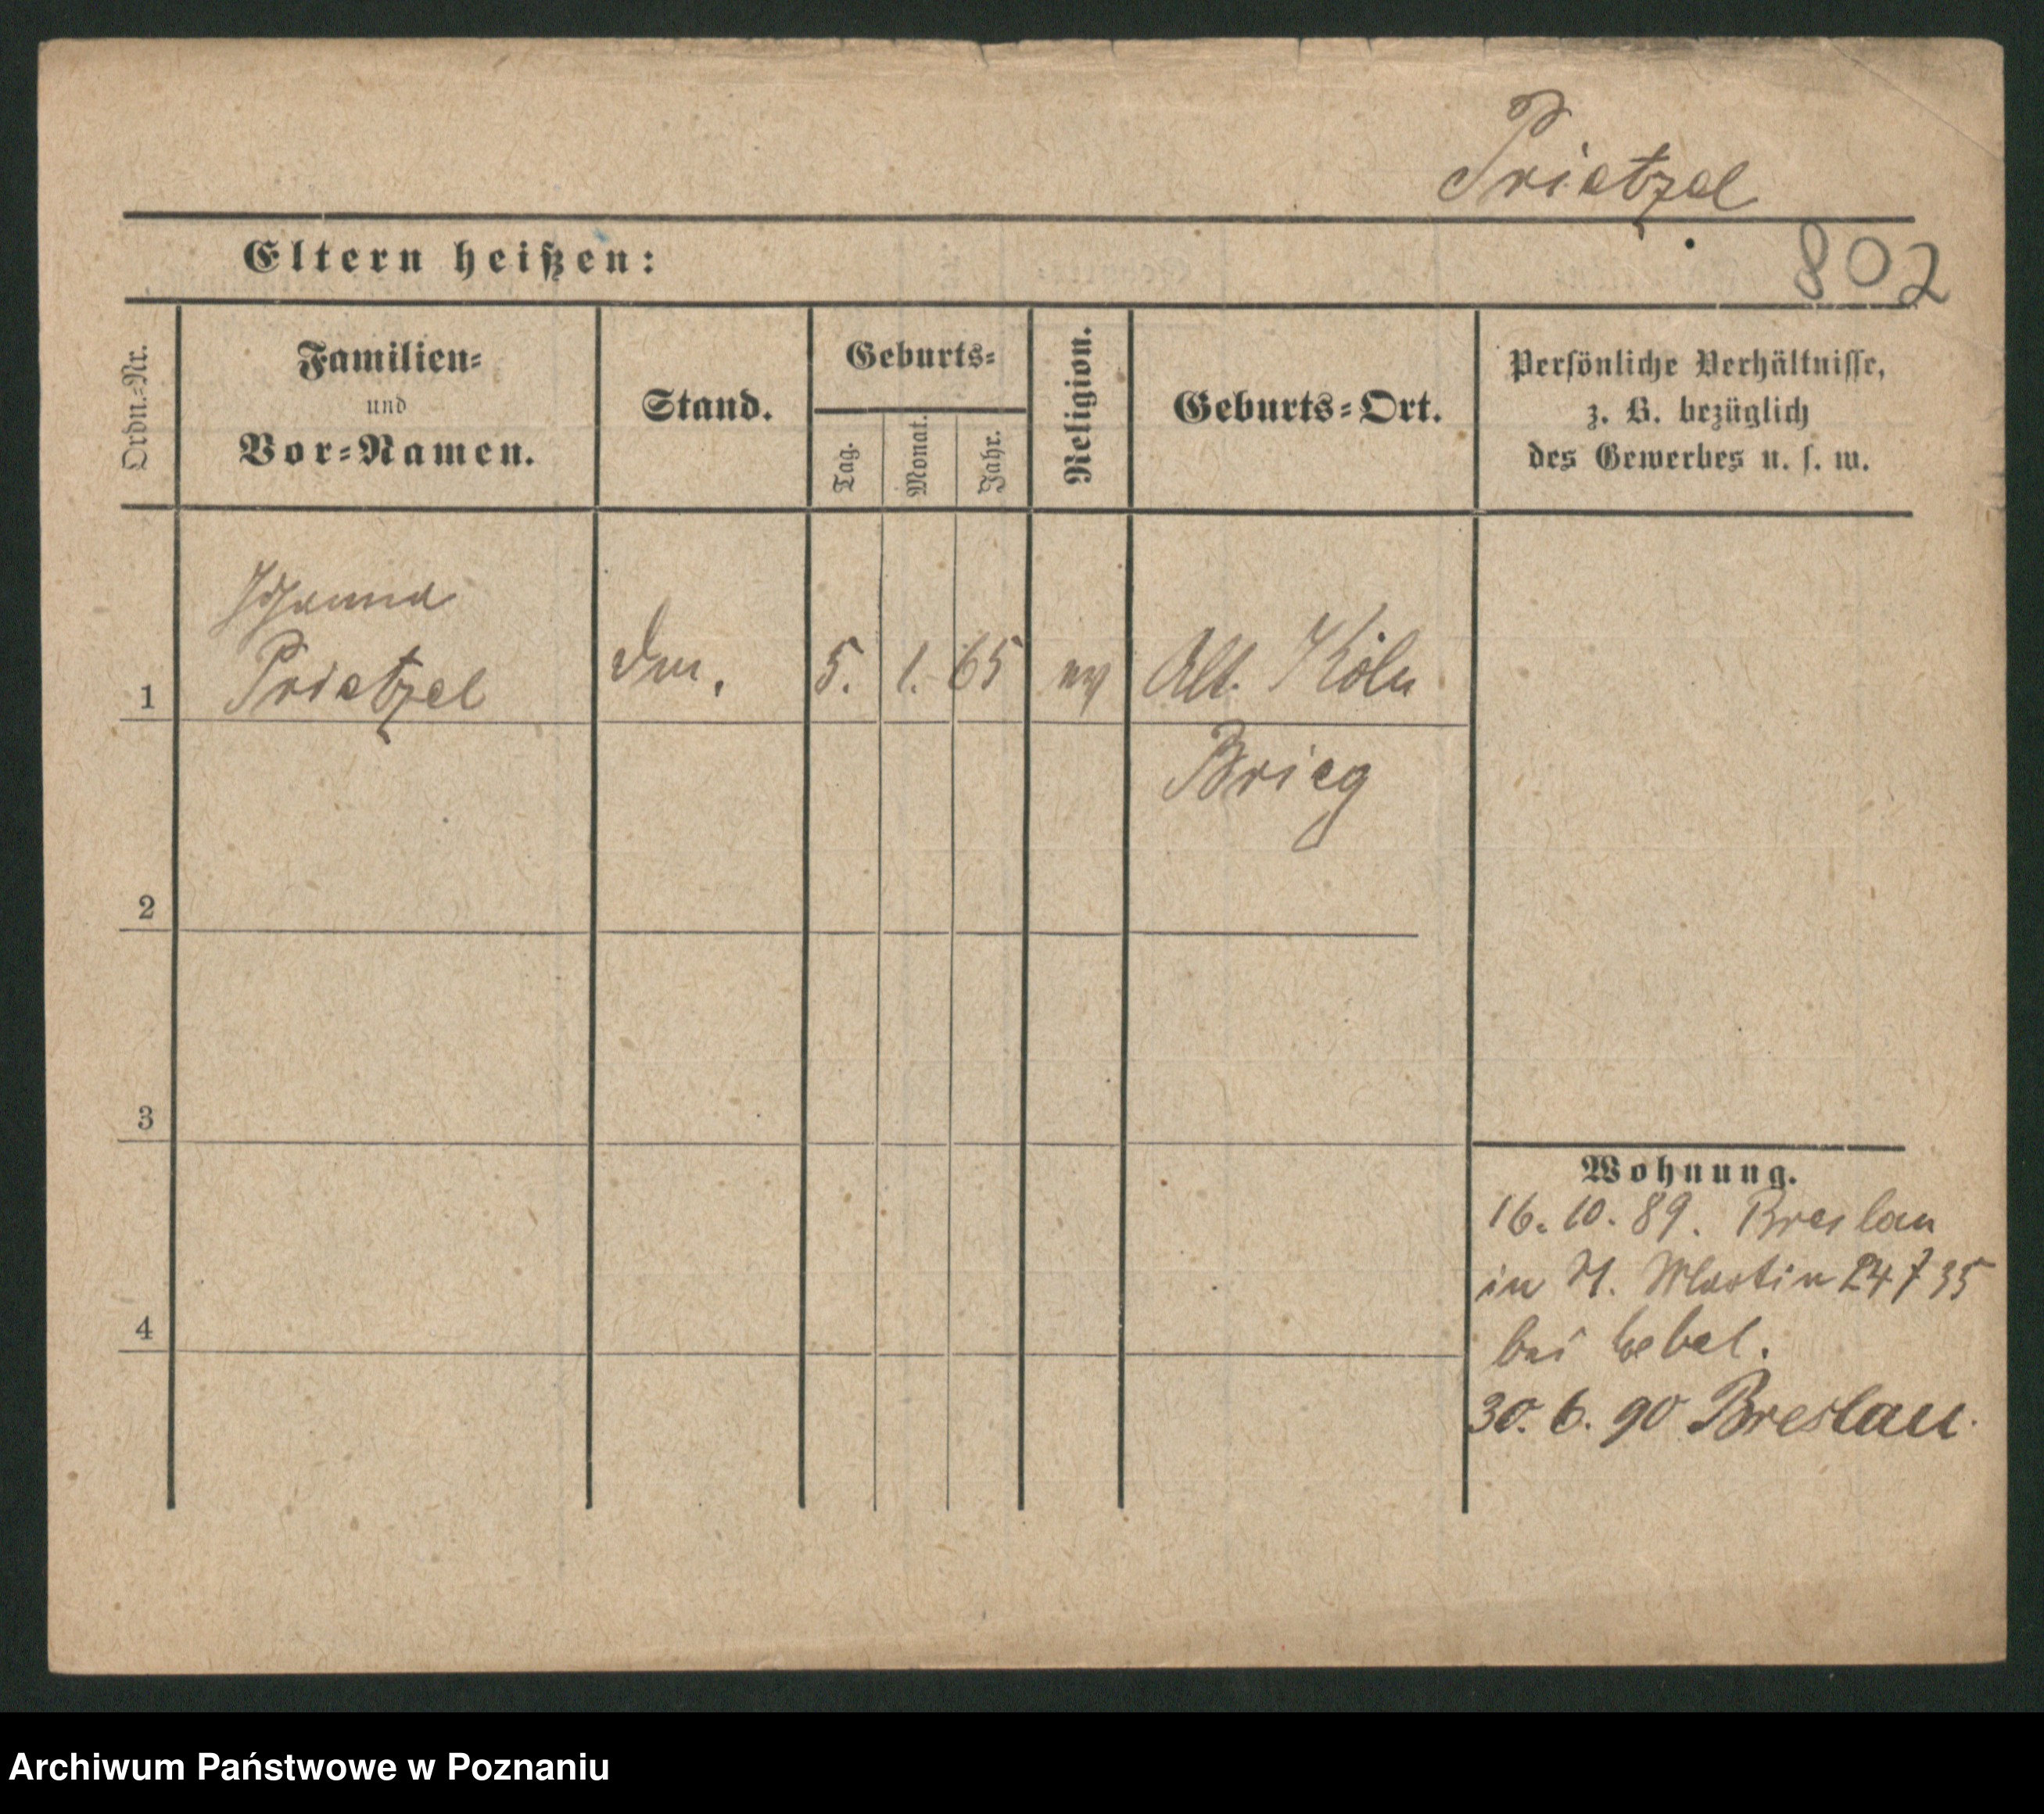 Prietzel
Eltern heißen:
802
Ordn.-Nr.
Familien-
und
Vor-Namen.
Stand.
Geburts-
Tag.
Monat.
Jahr.
Religion.
Geburts-Ort.
Persönliche Verhältnisse,
z. B. bezüglich
des Gewerbes u. s. w.
Johanna
1 Prietzel 5. 1. 65 ev Alt. Köln
Brieg
2
3
4
Wohnung.
16. 10. 89. Breslau
in St. Martin 24 735
bei
30. 6. 90 Breslau.
Archiwum Państwowe w Poznaniu